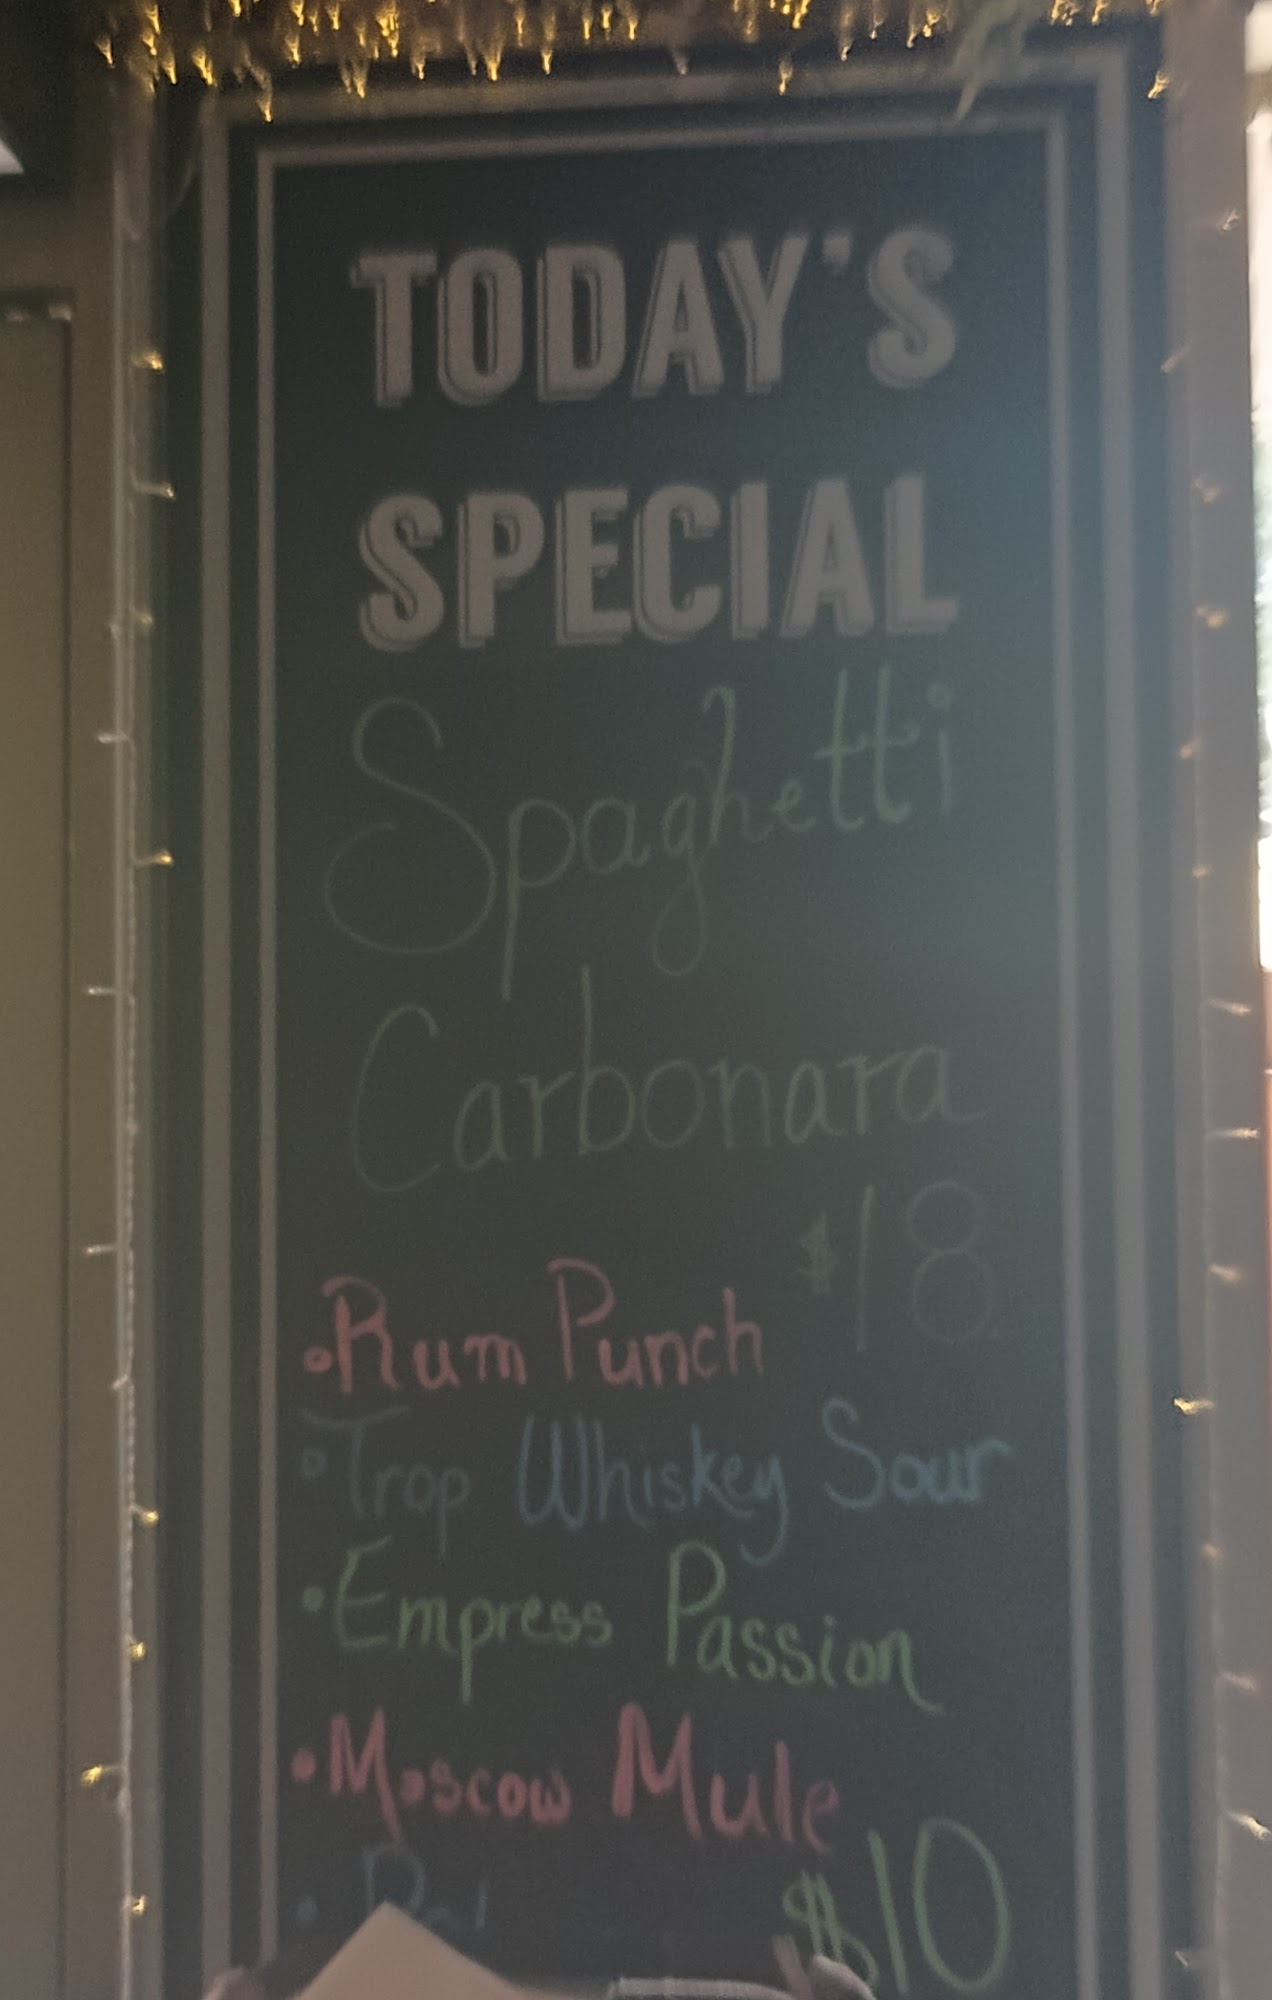 TODAY'S
SPECIAL
Spaghetti
Carbonara
$18
•Rum Punch
•Trop Whiskey Sour
•Empress Passion
•Moscow Mule
$10